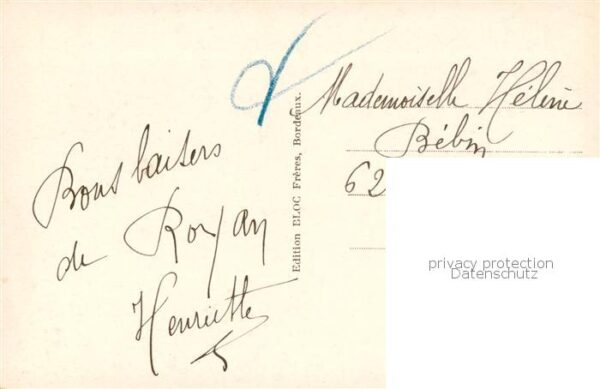 Bons baisers
de Royan
Henriette
Edition BLOC Frères, Bordeaux.
Mademoiselle Hélène
Bébin
62
privacy protection
Datenschutz